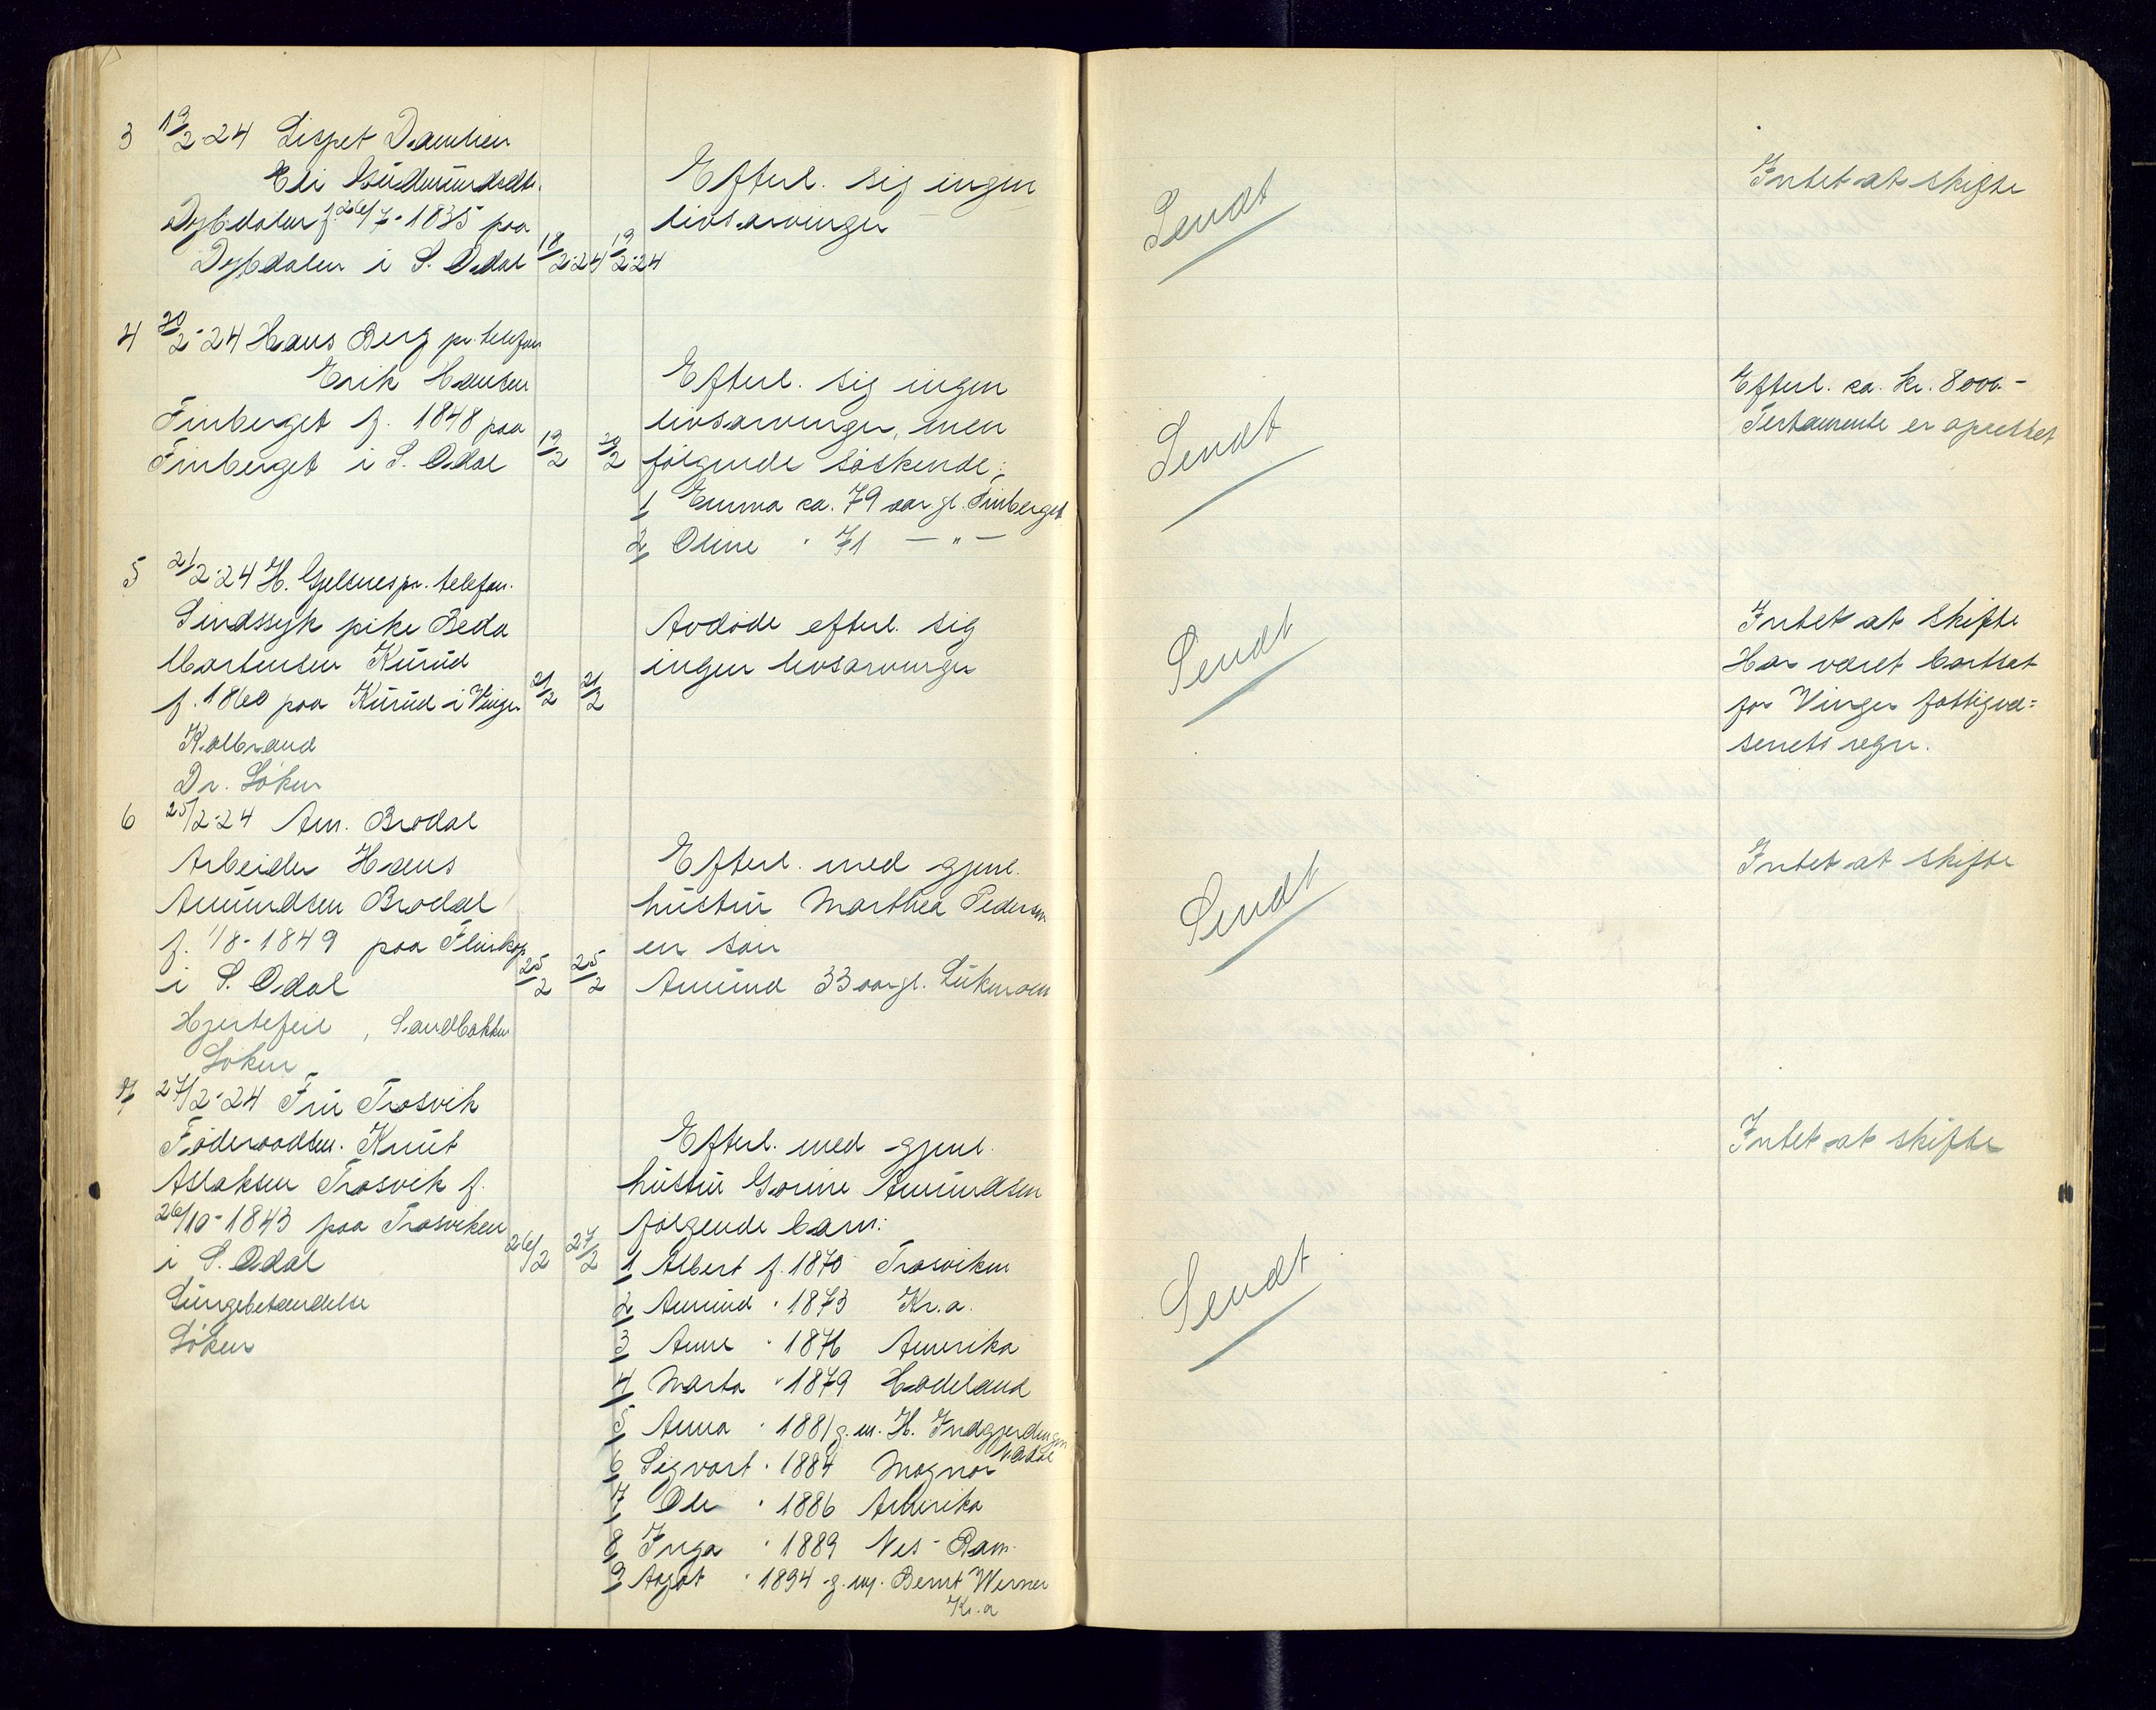 3 19/2-24 Lispet Damlien
Eli Gudmundsdtr.
Dybdalen f. 26/7-1835 paa
Dybdalen i S. Odal 18/2-24 19/2-24
Efterl. sig ingen
livsarvinger
Sendt
Intet at skifte
4 20/2-24 Hans Berg pr. telefon
Erik Hansen
Finberget f. 1848 paa
Finberget i S. Odal 19/2 20/2
Efterl. sig ingen
livsarvinger, men
følgende søskende:
1 Emma ca. 79 aar gl. Finberget
2 Oline " 71 — " —
Sendt
Efterl. ca. kr. 8000.-
Testamente er oprettet
5 21/2-24 H. Gjelsnes pr. telefon.
Sindssyk pike Beda
Mortensen Kurud
f. 1860 paa Kurud i Vinger 21/2 21/2
Kolbrand
Dr. Løken
Avdøde efterl. sig
ingen livsarvinger
Sendt
Intet at skifte
Har været bortsat
for Vinger fattigvæ=
senets regn.
6 25/2-24 Am. Brodal
Arbeider Hans
Amundsen Brodal
f. 1/8-1849 paa
i S. Odal 25/2 25/2
Hjertefeil, Sandbakken
Løken
Efterl. med gjenl.
hustru Marthea Pedersen
en søn
Amund 33 aar gl.
Sendt
Intet at skifte
7 27/2-24 Fru Trosvik
Føderaadsm. Knut
Aslaksen Trosvik f.
26/10-1843 paa Trosviken
i S. Odal 26/2 27/2
Lungebetændelse
Løken
Efterl. med gjenl.
hustru Gorine Amundsen
følgende barn:
1 Albert f. 1870 Trosviken
2 Amund " 1873 Kr.a.
3 Anne " 1876 Amerika
4 Marta " 1879 Hadeland
5 Anna " 1881 g. m. H. Indgjerdingen
N. Odal
6 Sigvart " 1884 Magnor
7 Ole " 1886 Amerika
8 Inga " 1889 Nes - Rom.
9 Aagot " 1894 g. m. Bernt Werner
Kr.a
Sendt
Intet at skifte